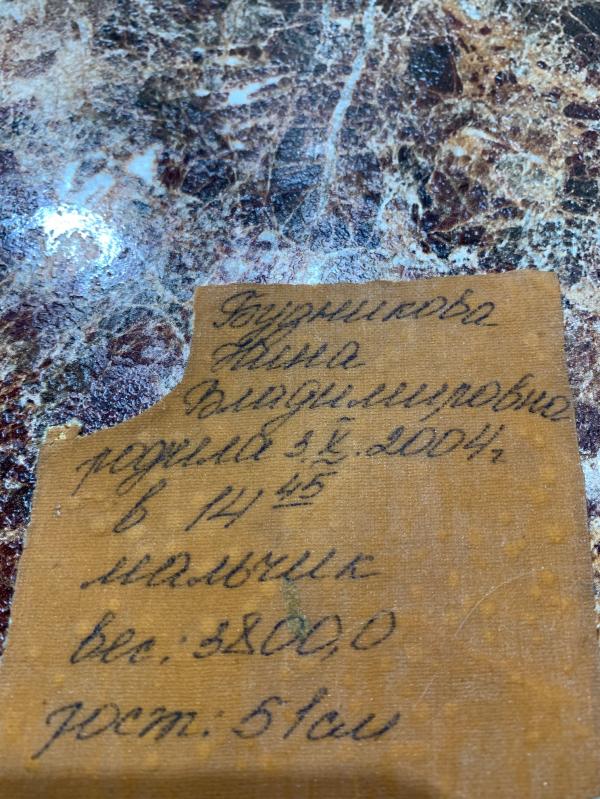 Будникова
Нина
Владимировна
родила 3.X.2004г.
в 14 45
мальчик
вес: 3800,0
рост: 51см